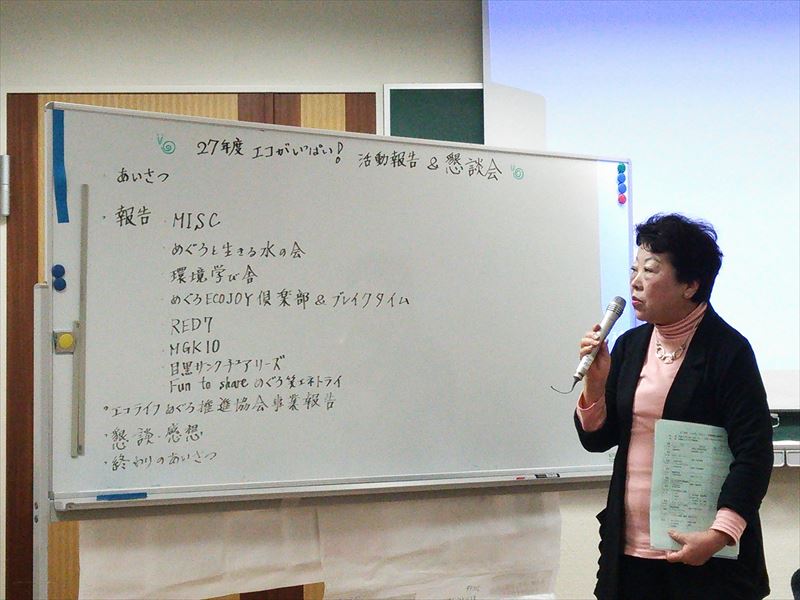 27年度 エコがいっぱい! 活動報告 & 懇談会
・あいさつ
・報告 ・MISC
・めぐろと生きる水の会
・環境学び舎
・めぐろECOJOY倶楽部&ブレイクタイム
・RED7
・MGK10
・目黒サンクチュアリーズ
Fun to share めぐろ笑エネトライ
・エコライフめぐろ推進協会事業報告
・懇談・感想
・終わりのあいさつ